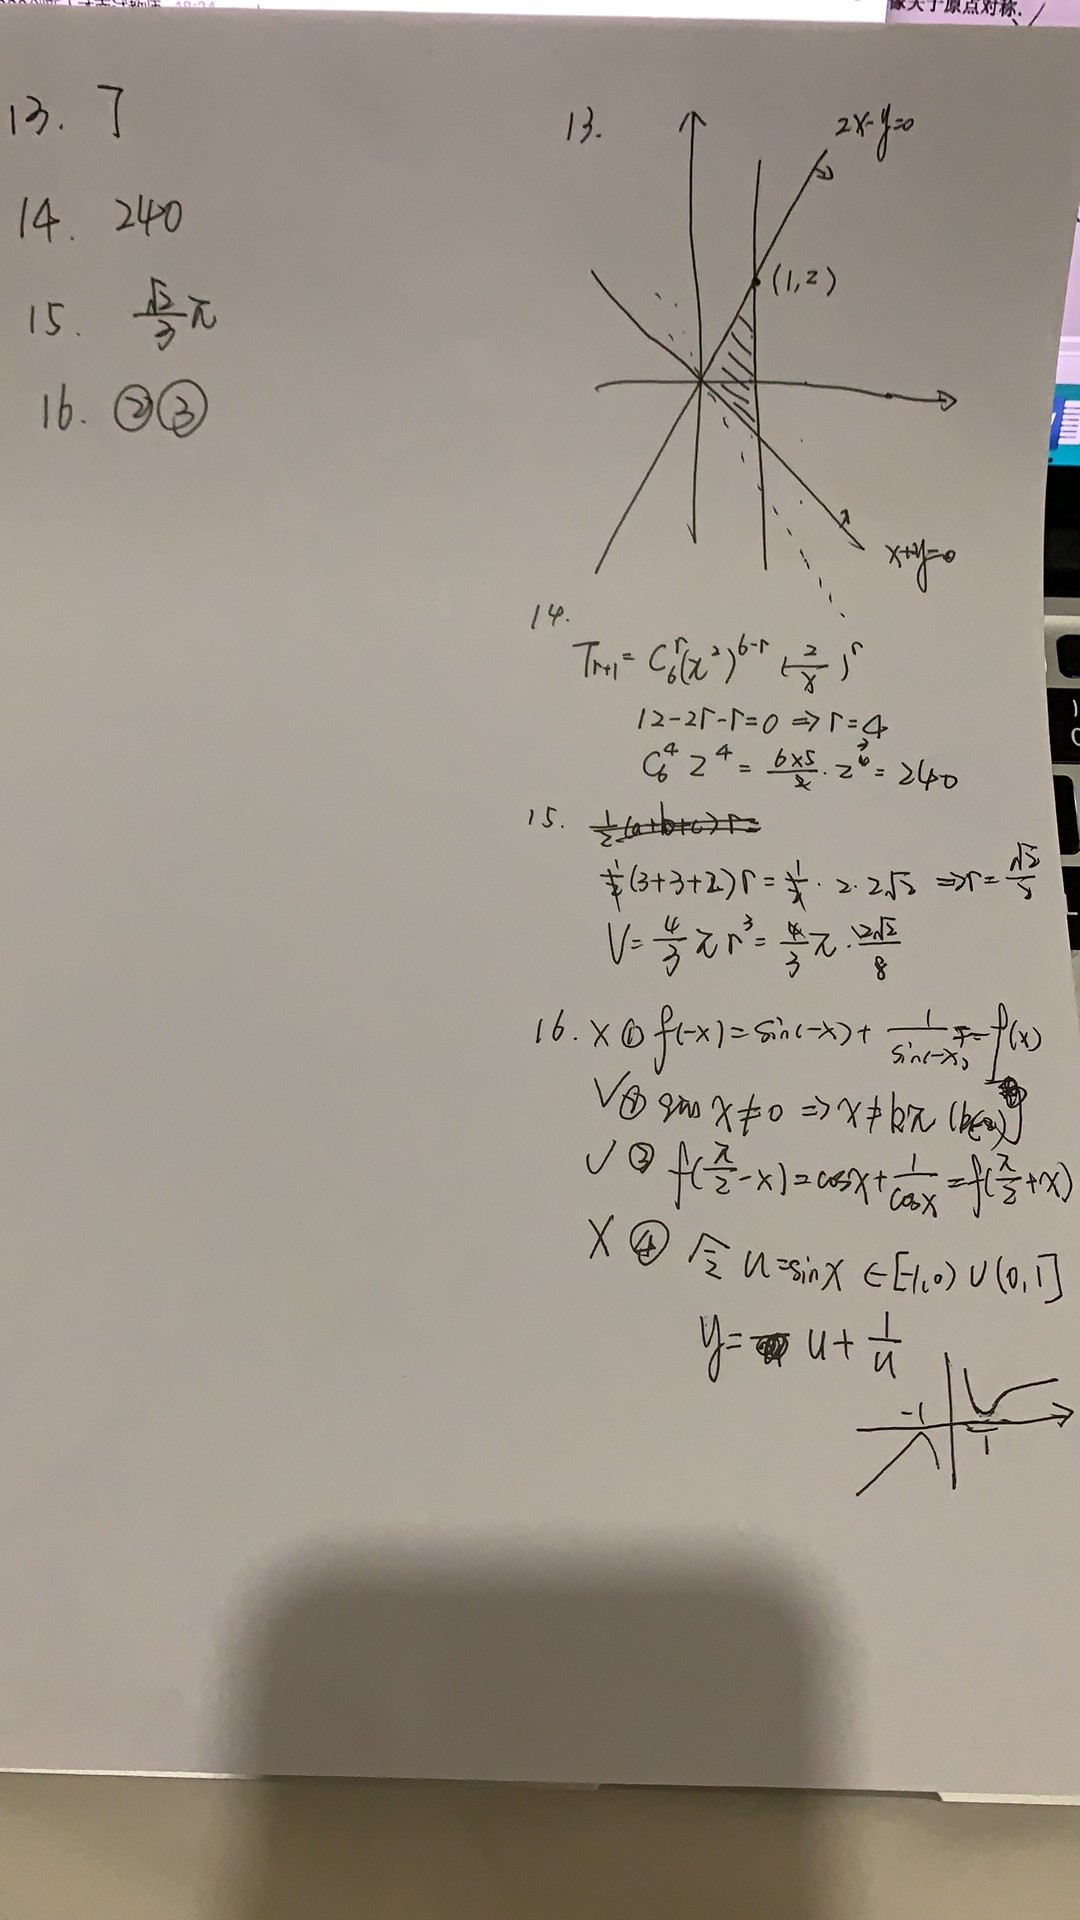 像关于原点对称.
13. 7
14. 240
15. √2/3 π
16. ②③
13.
2x-y=0
(1,2)
x+y=0
14.
Tr+1 = C₆ʳ(x²)⁶⁻ʳ (2/x)ʳ
12-2r-r=0 ⇒ r=4
C₆⁴ 2⁴ = 6×5/2 · 2⁴ = 240
15. 1/2(a+b+c)r=
1/2(3+3+2)r = 1/2 · 2 · 2√2 ⇒ r = √2/2
V = 4/3 πr³ = 4/3 π · 2√2/8
16. × ① f(-x)=sin(-x)+ 1/sin(-x) = -f(x)
√ ② sin x≠0 ⇒ x≠kπ (k∈Z)
√ ③ f(π/2-x)=cosx+1/cosx=f(π/2+x)
× ④ u=sinx ∈[-1,0)∪(0,1]
y= u+1/u
-1
1